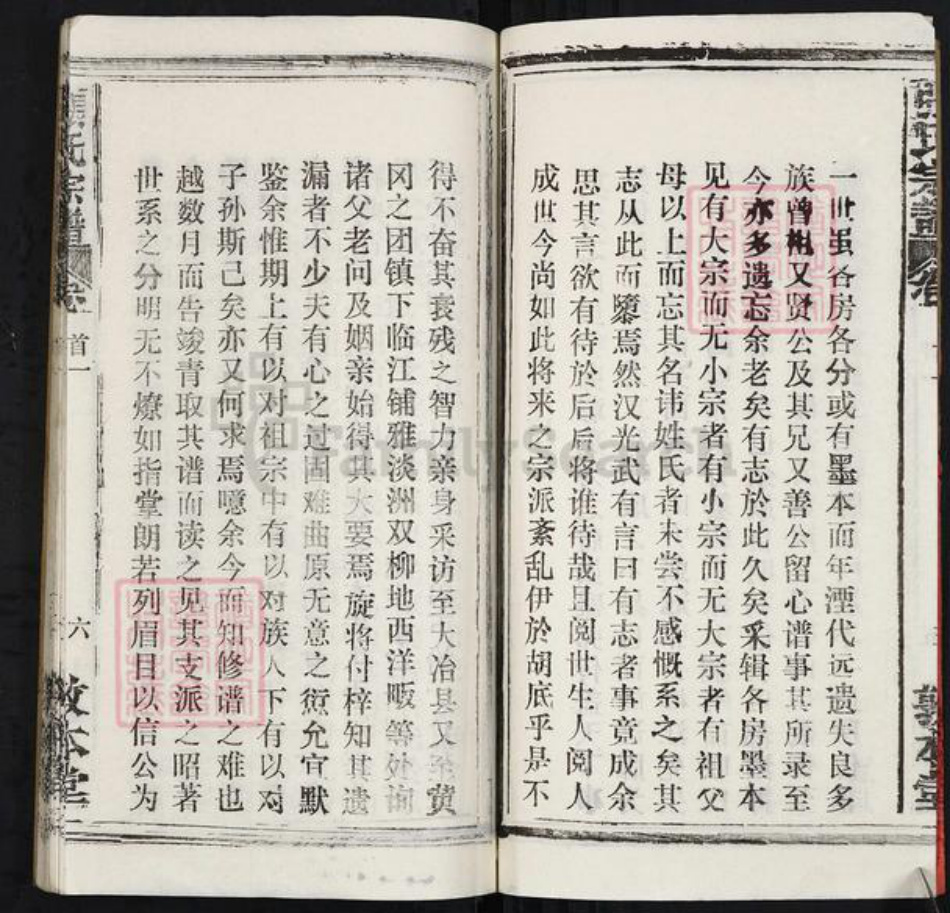 一世虽各房各分或有墨本而年湮代远遗失良多
族曾相又贤公及其兄又善公留心谱事其所录至
今亦多遗忘余老矣有志於此久矣采辑各房墨本
见有大宗而无小宗者有小宗而无大宗者有祖父
母以上而忘其名讳姓氏者未尝不感慨系之矣其
志从此而隳焉然汉光武有言曰有志者事竟成余
思其言欲有待於后后将谁待哉且阅世生人阅人
成世今尚如此将来之宗派紊乱伊於胡底乎是不
得不奋其衰残之智力亲身采访至大冶县又至黄
冈之团镇下临江铺雅淡洲双柳地西洋畈等处询
诸父老问及姻亲始得其大要焉旋将付梓知其遗
漏者不少夫有心之过固难曲原无意之愆允宜默
鉴余惟期上有以对祖宗中有以对族人下有以对
子孙斯已矣亦又何求焉噫余今而知修谱之难也
越数月而告竣青取其谱而读之见其支派之昭著
世系之分明无不燎如指堂朗若列眉目以信公为
氏宗谱 卷首一 六 敦本堂
FamilySearch